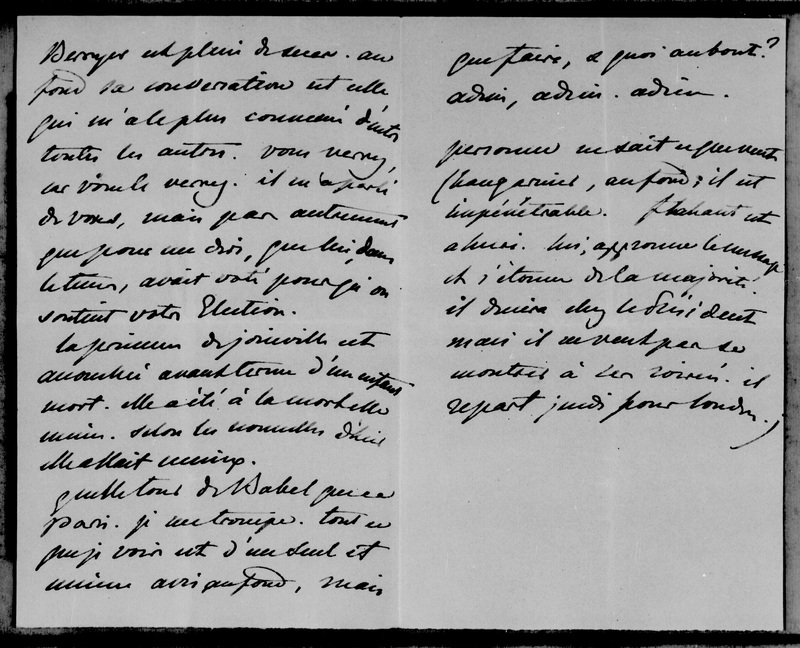 Berryer est plein de sucer. au
fond sa conversation est celle
qui m'a le plus convenu d'entre
toutes les autres. vous verrez,
car vous le verrez. il m'a parlé
de vous, mais pas autrement
que pour me dire, que lui, dans
le tems, avait voté pour qu'on
soutint votre Election.
la princesse de joinville est
accouchée avant terme d'un enfant
mort. elle a été à la mort elle
même. selon les nouvelles d'hier
elle allait mieux.
quelle tour de Babel que ce
paris. je me trompe. tout ce
que je vois est d'un seul et
même avis au fond, mais
que faire, à quoi on bout?
adieu, adieu. adieu.
personne ne sait ce que veut
Changarnier, au fond; il est
impénétrable. flahaut est
ahuri. lui, approuve le message
et s'étonne de la majorité.
il dinera chez le Président
mais il ne veut pas se
montrer à ses soirées. il
repart jeudi pour londres.)